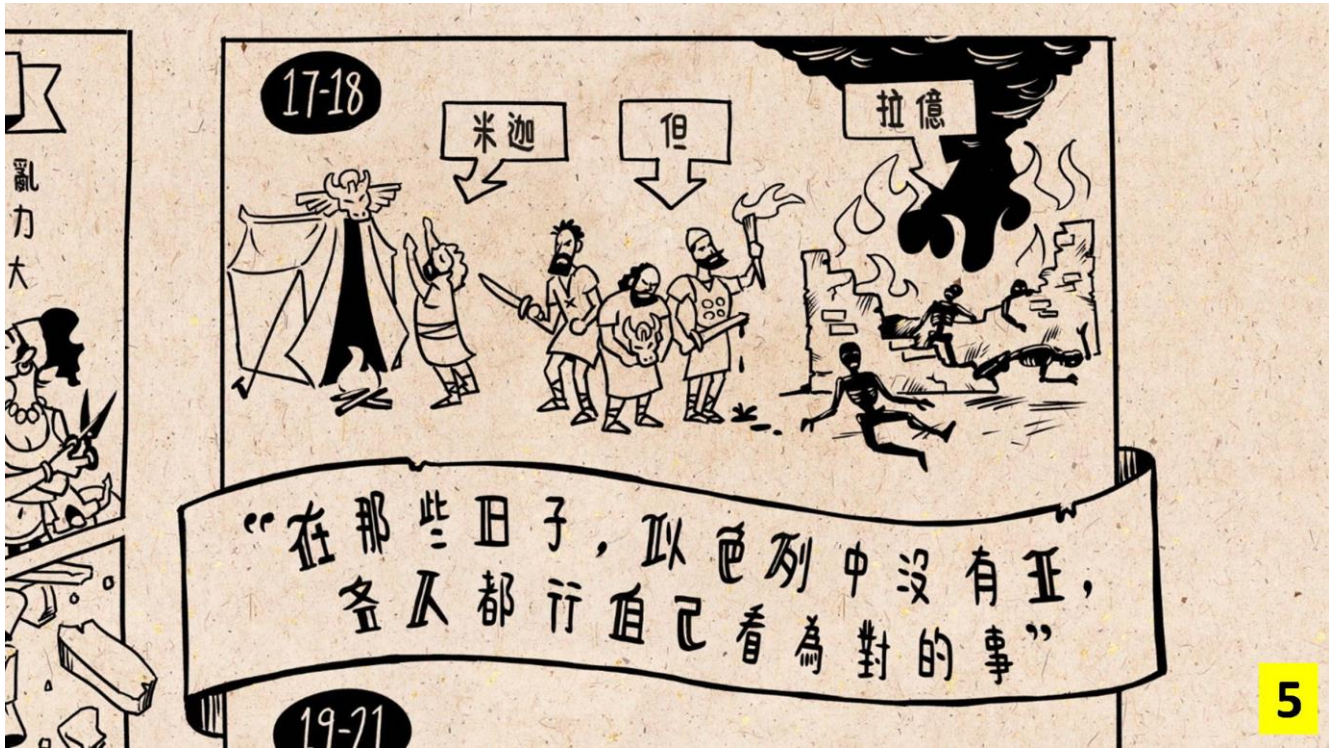 亂
力
大
17-18
米迦
但
拉億
“在那些日子,以色列中沒有王,
各人都行自己看為對的事”
19-21
5